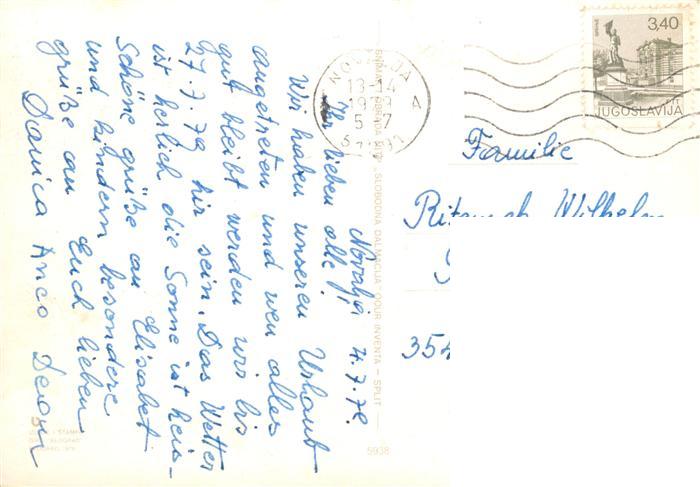 Novalja 4.7.79.
Ihr lieben alle!
Wir haben unseren Urlaub
angetreten und wen alles
gut bleibt werden wir bis
27.7.79 hir sein. Das Wetter
ist herlich die Sonne ist heis-
Schöne grüße an Elisabet
und kindern besondere
grüße an Euch lieben
Danica Anco
NOVALJA
13-14
1979
5 7
A
3,40
JUGOSLAVIJA
Familie
Wilhelm
354
"SLOBODNA DALMACIJA" OOUR INVENTA – SPLIT
5938